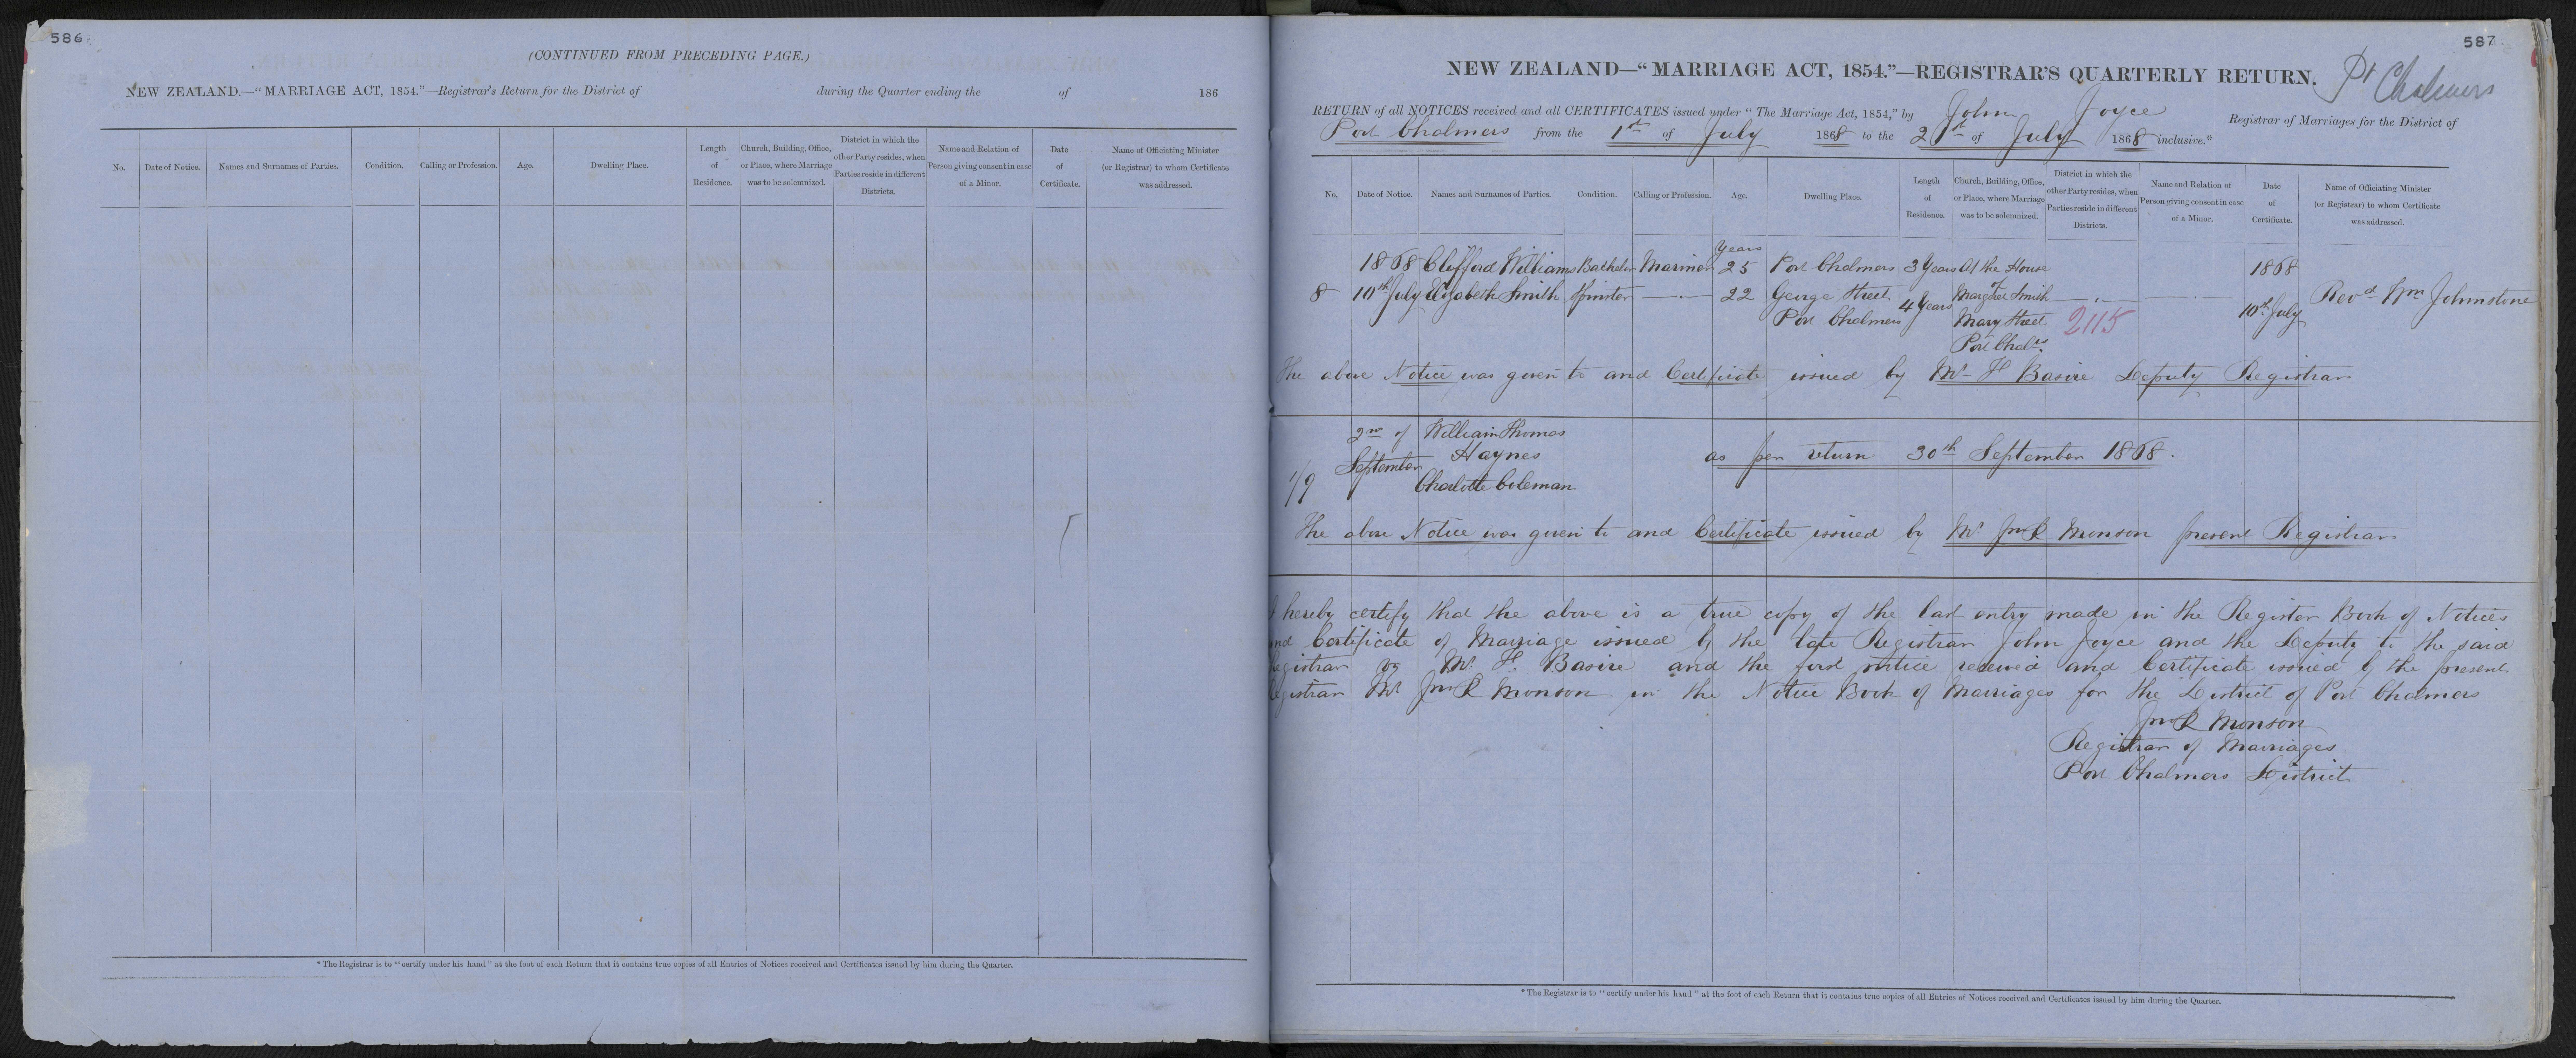 586
(CONTINUED FROM PRECEDING PAGE.)
NEW ZEALAND.—"MARRIAGE ACT, 1854."—Registrar's Return for the District of during the Quarter ending the of 186
No. Date of Notice. Names and Surnames of Parties. Condition. Calling or Profession. Age. Dwelling Place. Length of Residence. Church, Building, Office, or Place, where Marriage was to be solemnized. District in which the other Party resides, when Parties reside in different Districts. Name and Relation of Person giving consent in case of a Minor. Date of Certificate. Name of Officiating Minister (or Registrar) to whom Certificate was addressed.
* The Registrar is to "certify under his hand" at the foot of each Return that it contains true copies of all Entries of Notices received and Certificates issued by him during the Quarter.
587
NEW ZEALAND—"MARRIAGE ACT, 1854."—REGISTRAR'S QUARTERLY RETURN.
Pt Chalmers
RETURN of all NOTICES received and all CERTIFICATES issued under "The Marriage Act, 1854," by John Joyce Registrar of Marriages for the District of
Port Chalmers from the 1st of July 1868 to the 21st of July 1868 inclusive.*
No. Date of Notice. Names and Surnames of Parties. Condition. Calling or Profession. Age. Dwelling Place. Length of Residence. Church, Building, Office, or Place, where Marriage was to be solemnized. District in which the other Party resides, when Parties reside in different Districts. Name and Relation of Person giving consent in case of a Minor. Date of Certificate. Name of Officiating Minister (or Registrar) to whom Certificate was addressed.
Years
1868 Clifford Williams Bachelor Mariner 25 Port Chalmers 3 Years At the House 1868
8 10th July Elizabeth Smith Spinster 22 George Street 4 Years of Margaret Smith 10th July Revd Wm Johnstone
Port Chalmers Mary Street 2115
Port Chalrs
The above Notice was given to and Certificate issued by Mr H Basire Deputy Registrar
2nd of William Thomas
September Haynes as per return 30th September 1868.
1/9 Charlotte Coleman
The above Notice was given to and Certificate issued by Mr Jno R Monson present Registrar
I hereby certify that the above is a true copy of the last entry made in the Register Book of Notices
and Certificate of Marriage issued by the late Registrar John Joyce and the Deputy to the said
Registrar Mr H. Basire and the first notice received and Certificate issued by the present
Registrar Mr Jno R Monson in the Notice Book of Marriages for the District of Port Chalmers
Jno R Monson
Registrar of Marriages
Port Chalmers District
* The Registrar is to "certify under his hand" at the foot of each Return that it contains true copies of all Entries of Notices received and Certificates issued by him during the Quarter.